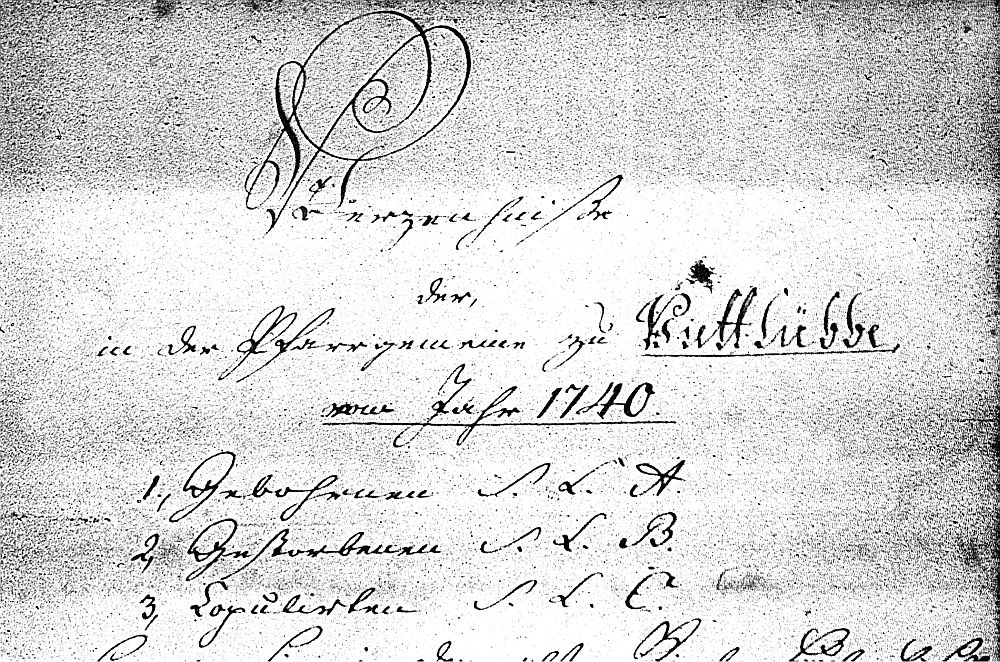 Verzeichniße
der,
in der Pfarrgemeine zu Vuttlübbe,
vom Jahr 1740.
1., Gebohrnen S. L. A.
2, Gestorbenen S. L. B.
3, Copulirten S. L. C.